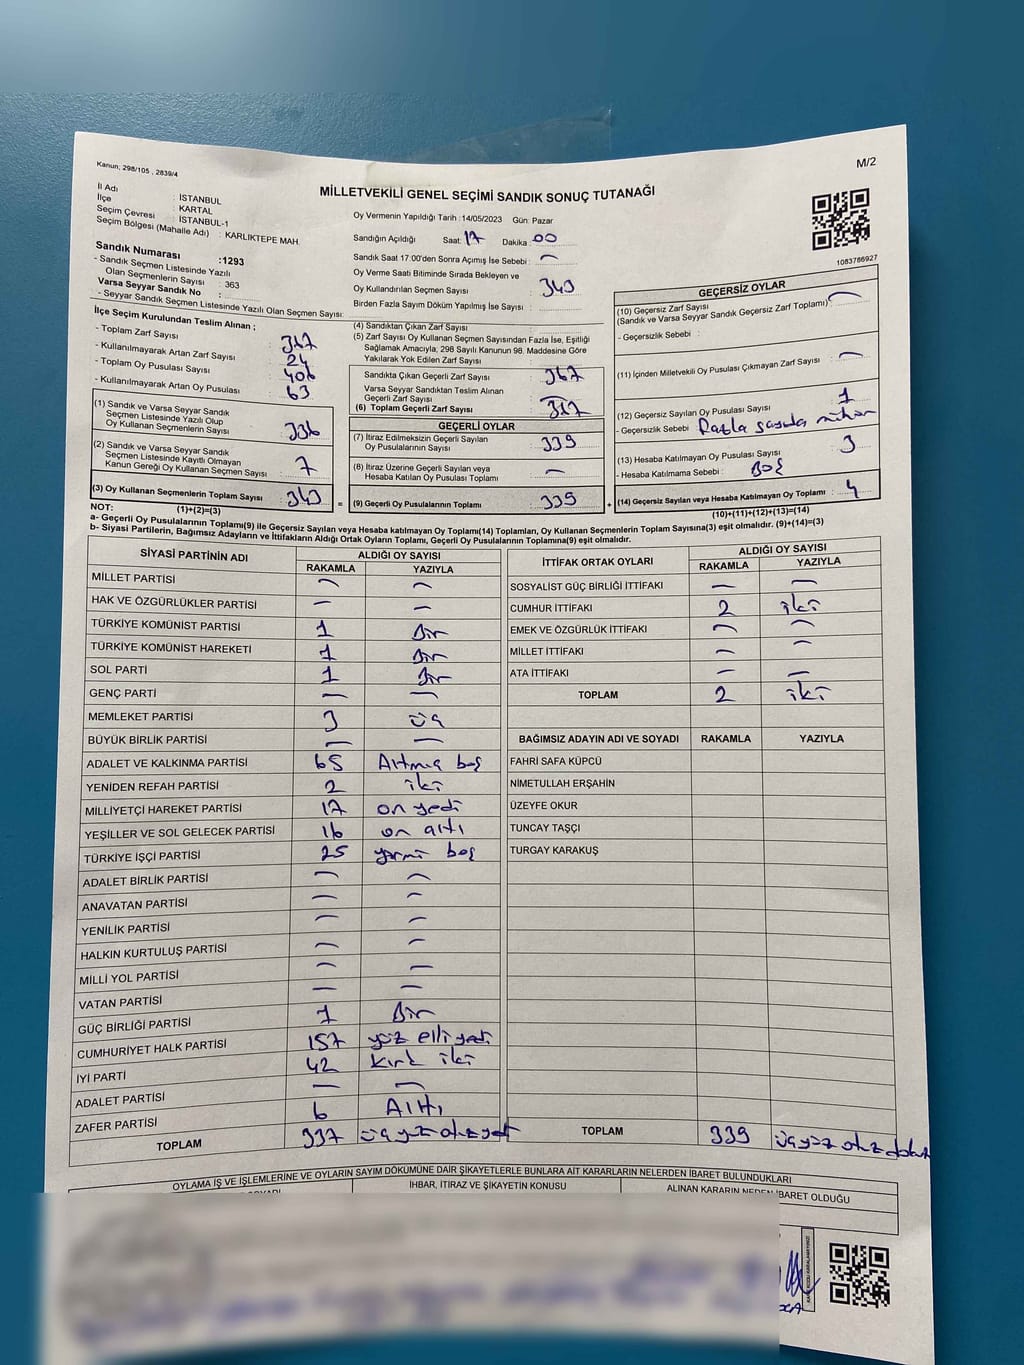 Kanun; 298/105 , 2839/4
M/2
MİLLETVEKİLİ GENEL SEÇİMİ SANDIK SONUÇ TUTANAĞI
İl Adı : İSTANBUL
İlçe : KARTAL
Seçim Çevresi : İSTANBUL-1
Seçim Bölgesi (Mahalle Adı) : KARLIKTEPE MAH.
Sandık Numarası :1293
- Sandık Seçmen Listesinde Yazılı
Olan Seçmenlerin Sayısı : 363
Varsa Seyyar Sandık No :
- Seyyar Sandık Seçmen Listesinde Yazılı Olan Seçmen Sayısı:
Oy Vermenin Yapıldığı Tarih :14/05/2023 Gün: Pazar
Sandığın Açıldığı Saat: 17 Dakika: 00
Sandık Saat 17.00'den Sonra Açımış İse Sebebi : —
Oy Verme Saati Bitiminde Sırada Bekleyen ve
Oy Kullandırılan Seçmen Sayısı : 343
Birden Fazla Sayım Döküm Yapılmış İse Sayısı :
1083786927
İlçe Seçim Kurulundan Teslim Alınan ;
- Toplam Zarf Sayısı :
- Kullanılmayarak Artan Zarf Sayısı : 24
- Toplam Oy Pusulası Sayısı :
- Kullanılmayarak Artan Oy Pusulası : 63
(1) Sandık ve Varsa Seyyar Sandık
Seçmen Listesinde Yazılı Olup
Oy Kullanan Seçmenlerin Sayısı : 336
(2) Sandık ve Varsa Seyyar Sandık
Seçmen Listesinde Kayıtlı Olmayan
Kanun Gereği Oy Kullanan Seçmen Sayısı : 7
(3) Oy Kullanan Seçmenlerin Toplam Sayısı : 343
(1)+(2)=(3)
(4) Sandıktan Çıkan Zarf Sayısı :
(5) Zarf Sayısı Oy Kullanan Seçmen Sayısından Fazla İse, Eşitliği
Sağlamak Amacıyla, 298 Sayılı Kanunun 98. Maddesine Göre
Yakılarak Yok Edilen Zarf Sayısı :
Sandıkta Çıkan Geçerli Zarf Sayısı :
Varsa Seyyar Sandıktan Teslim Alınan
Geçerli Zarf Sayısı : —
(6) Toplam Geçerli Zarf Sayısı :
GEÇERLİ OYLAR
(7) İtiraz Edilmeksizin Geçerli Sayılan
Oy Pusulalarının Sayısı : 339
(8) İtiraz Üzerine Geçerli Sayılan veya
Hesaba Katılan Oy Pusulası Toplamı : —
= (9) Geçerli Oy Pusulalarının Toplamı : 339 +
GEÇERSİZ OYLAR
(10) Geçersiz Zarf Sayısı
(Sandık ve Varsa Seyyar Sandık Geçersiz Zarf Toplamı) : —
- Geçersizlik Sebebi :
(11) İçinden Milletvekili Oy Pusulası Çıkmayan Zarf Sayısı : —
(12) Geçersiz Sayılan Oy Pusulası Sayısı : 1
- Geçersizlik Sebebi : Fazla sayıda mühür
(13) Hesaba Katılmayan Oy Pusulası Sayısı : 3
- Hesaba Katılmama Sebebi : BOŞ
(14) Geçersiz Sayılan veya Hesaba Katılmayan Oy Toplamı : 4
(10)+(11)+(12)+(13)=(14)
NOT:
a- Geçerli Oy Pusulalarının Toplamı(9) ile Geçersiz Sayılan veya Hesaba katılmayan Oy Toplamı(14) Toplamları, Oy Kullanan Seçmenlerin Toplam Sayısına(3) eşit olmalıdır. (9)+(14)=(3)
b- Siyasi Partilerin, Bağımsız Adayların ve İttifakların Aldığı Ortak Oyların Toplamı, Geçerli Oy Pusulalarının Toplamına(9) eşit olmalıdır.
SİYASİ PARTİNİN ADI ALDIĞI OY SAYISI
RAKAMLA YAZIYLA
MİLLET PARTİSİ — —
HAK VE ÖZGÜRLÜKLER PARTİSİ — —
TÜRKİYE KOMÜNİST PARTİSİ 1 Bir
TÜRKİYE KOMÜNİST HAREKETİ 1 Bir
SOL PARTİ 1 Bir
GENÇ PARTİ — —
MEMLEKET PARTİSİ 3 üç
BÜYÜK BİRLİK PARTİSİ — —
ADALET VE KALKINMA PARTİSİ 65 Altmış beş
YENİDEN REFAH PARTİSİ 2 iki
MİLLİYETÇİ HAREKET PARTİSİ 17 on yedi
YEŞİLLER VE SOL GELECEK PARTİSİ 16 on altı
TÜRKİYE İŞÇİ PARTİSİ 25 yirmi beş
ADALET BİRLİK PARTİSİ — —
ANAVATAN PARTİSİ — —
YENİLİK PARTİSİ — —
HALKIN KURTULUŞ PARTİSİ — —
MİLLİ YOL PARTİSİ — —
VATAN PARTİSİ — —
GÜÇ BİRLİĞİ PARTİSİ 1 Bir
CUMHURİYET HALK PARTİSİ 157 yüz elli yedi
İYİ PARTİ 42 kırk iki
ADALET PARTİSİ — —
ZAFER PARTİSİ 6 Altı
TOPLAM 337 üçyüz otuz yedi
İTTİFAK ORTAK OYLARI ALDIĞI OY SAYISI
RAKAMLA YAZIYLA
SOSYALİST GÜÇ BİRLİĞİ İTTİFAKI — —
CUMHUR İTTİFAKI 2 iki
EMEK VE ÖZGÜRLÜK İTTİFAKI — —
MİLLET İTTİFAKI — —
ATA İTTİFAKI — —
TOPLAM 2 iki
BAĞIMSIZ ADAYIN ADI VE SOYADI RAKAMLA YAZIYLA
FAHRİ SAFA KÜPCÜ
NİMETULLAH ERŞAHİN
ÜZEYFE OKUR
TUNCAY TAŞÇI
TURGAY KARAKUŞ
TOPLAM 339 üçyüz otuz dokuz
OYLAMA İŞ VE İŞLEMLERİNE VE OYLARIN SAYIM DÖKÜMÜNE DAİR ŞİKAYETLERLE BUNLARA AİT KARARLARIN NELERDEN İBARET BULUNDUKLARI
İHBAR, İTİRAZ VE ŞİKAYETİN KONUSU
ALINAN KARARIN NEDEN İBARET OLDUĞU